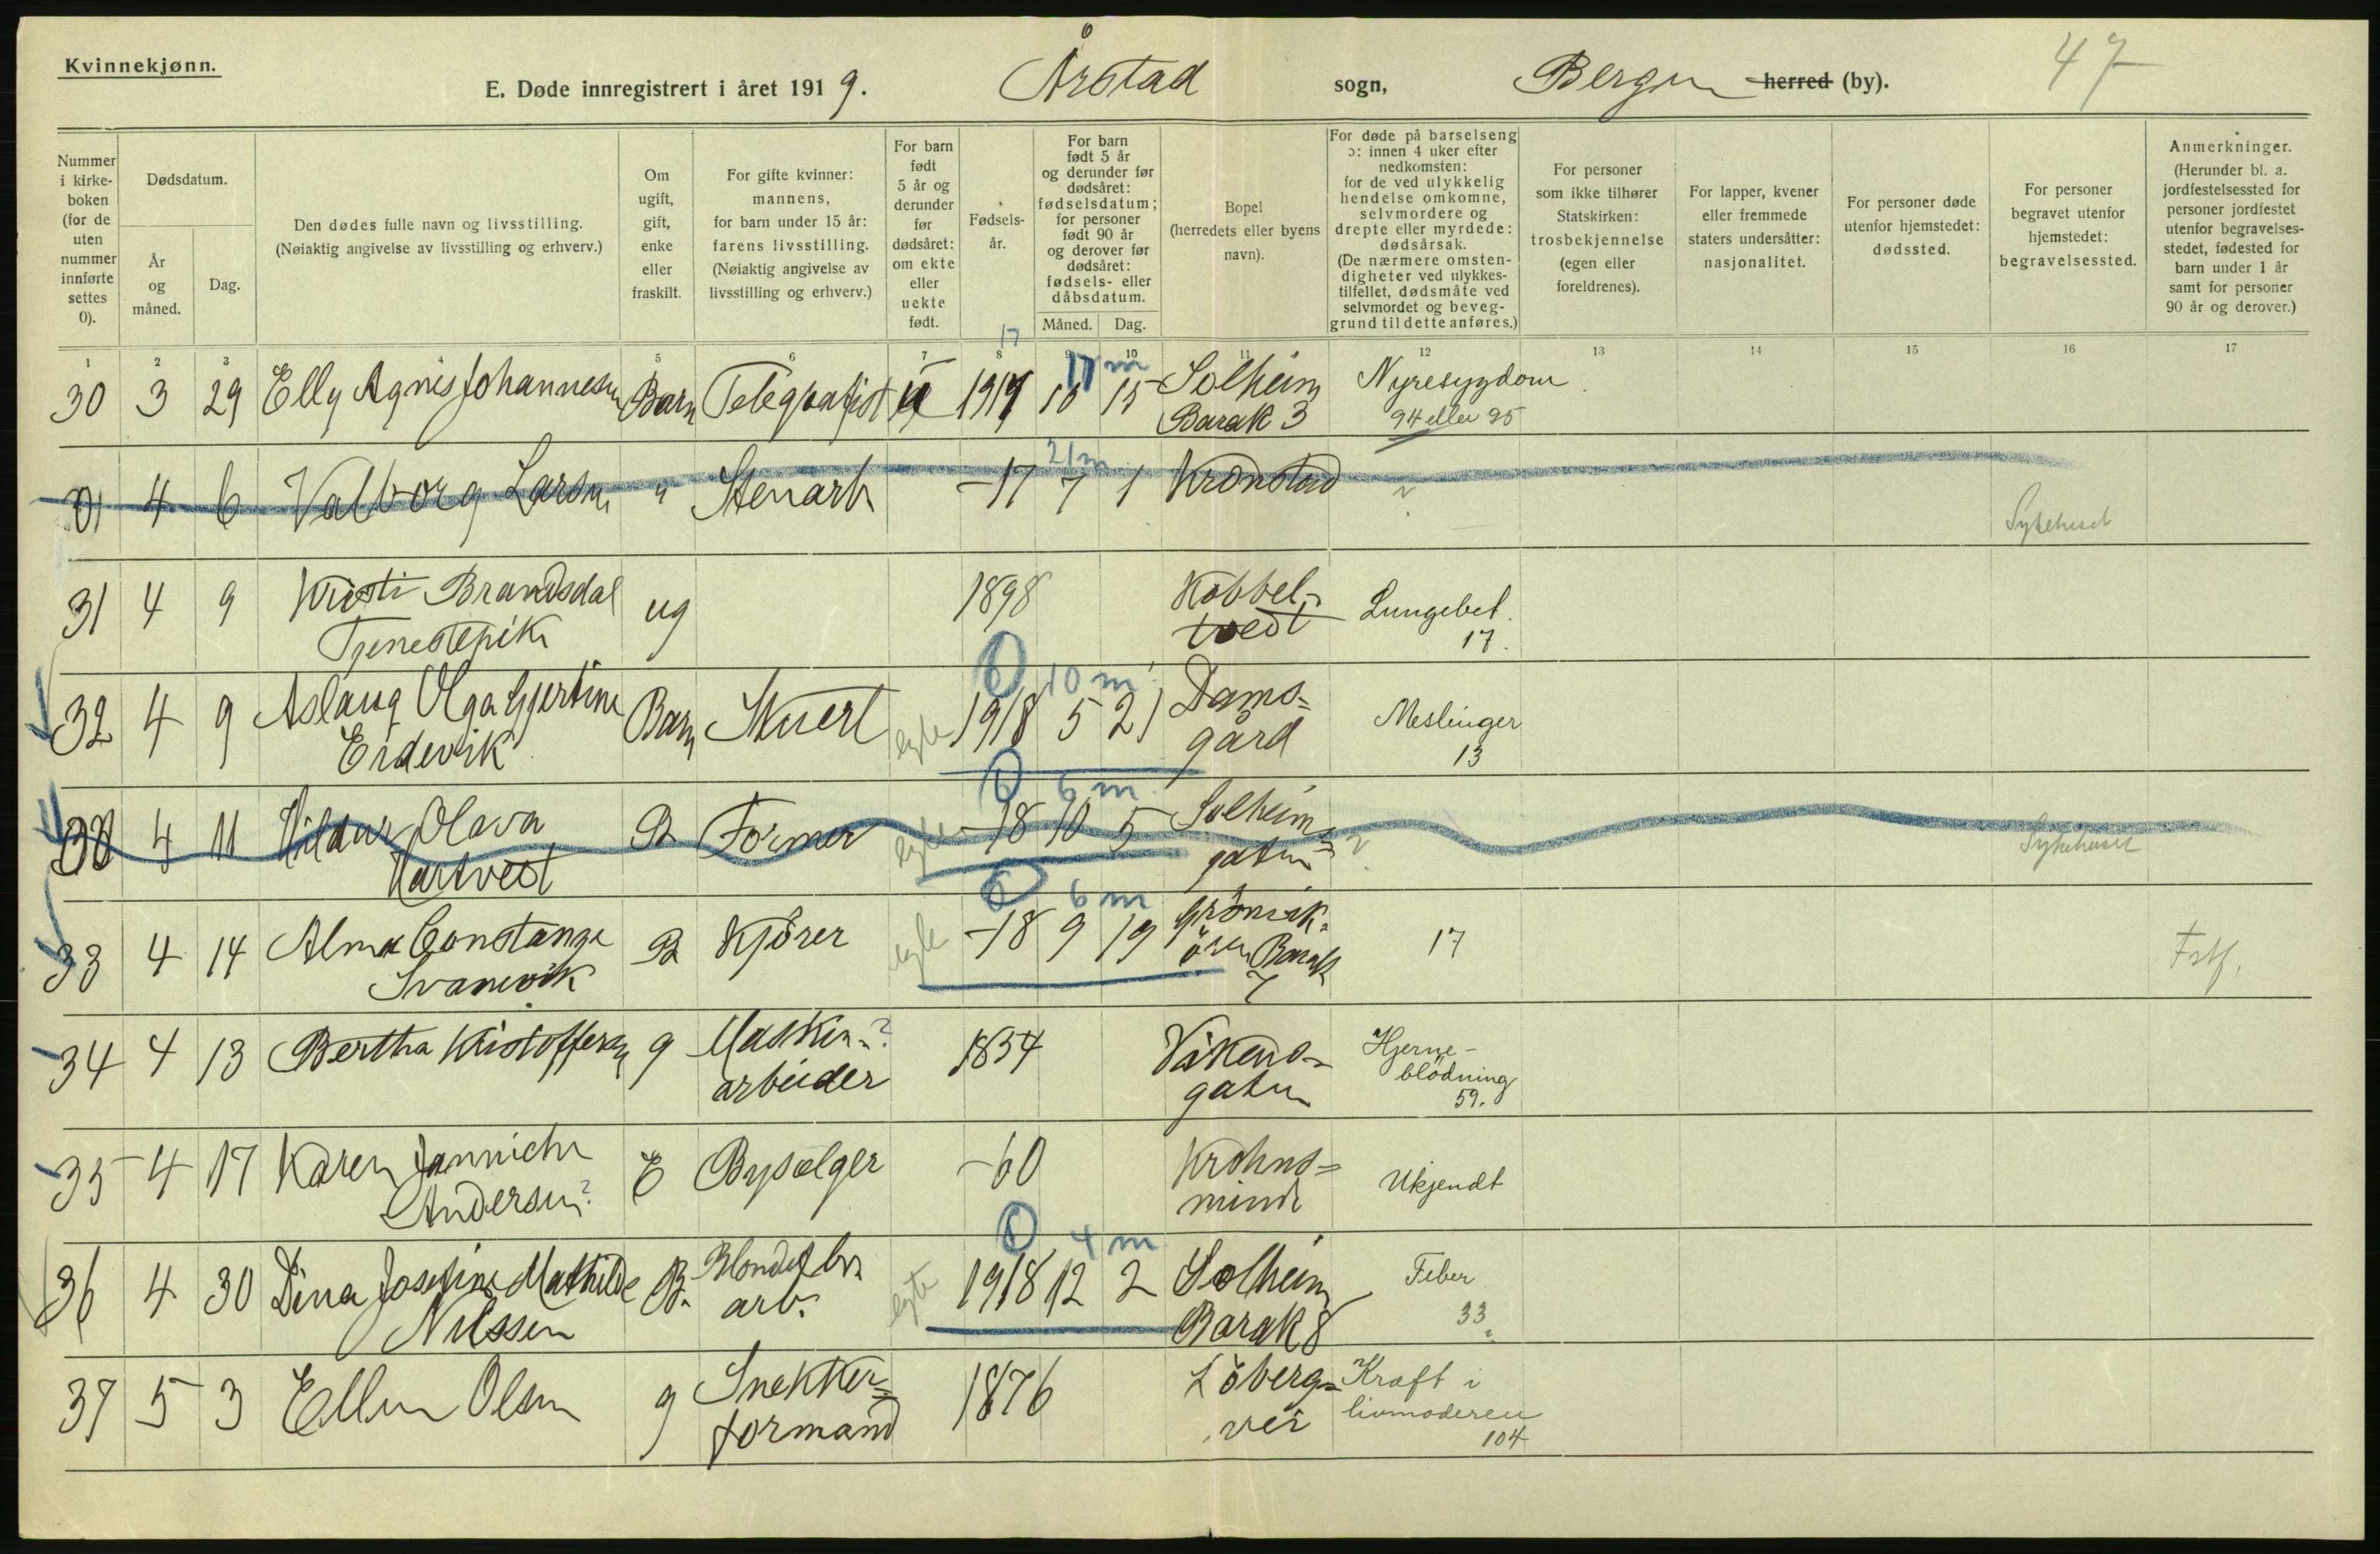 Kvinnekjønn.
E. Døde innregistrert i året 1919. Årstad sogn, Bergen herred (by). 47
Nummer i kirke-boken (for de uten nummer innførte settes 0).
Dødsdatum.
År og måned.
Dag.
Den dødes fulle navn og livsstilling.
(Nøiaktig angivelse av livsstilling og erhverv.)
Om ugift, gift, enke eller fraskilt.
For gifte kvinner: mannens, for barn under 15 år: farens livsstilling. (Nøiaktig angivelse av livsstilling og erhverv.)
For barn født 5 år og derunder før dødsåret: om ekte eller uekte født.
Fødsels-år.
For barn født 5 år og derunder før dødsåret: fødselsdatum; for personer født 90 år og derover før dødsåret: fødsels- eller dåbsdatum.
Måned. Dag.
Bopel (herredets eller byens navn).
For døde på barselseng ɔ: innen 4 uker efter nedkomsten: for de ved ulykkelig hendelse omkomne, selvmordere og drepte eller myrdede: dødsårsak. (De nærmere omsten-digheter ved ulykkes-tilfellet, dødsmåte ved selvmordet og beveg-grund til dette anføres.)
For personer som ikke tilhører Statskirken: trosbekjennelse (egen eller foreldrenes).
For lapper, kvener eller fremmede staters undersåtter: nasjonalitet.
For personer døde utenfor hjemstedet: dødssted.
For personer begravet utenfor hjemstedet: begravelsessted.
Anmerkninger. (Herunder bl. a. jordfestelsessted for personer jordfestet utenfor begravelses-stedet, fødested for barn under 1 år samt for personer 90 år og derover.)
1 2 3 4 5 6 7 8 9 10 11 12 13 14 15 16 17
17 17 m
30 3 29 Elly Agnes Johannesen Barn Telegrafist 1917 10 15 Solheim Nyresygdom
Barak 3 94 eller 95
21 m
4 6 Valborg Larsen " Stenarb -17 7 1 Kronstad ?
Sykehuset
31 4 9 Kristi Brandsdal ug 1898 Kobbel- Lungebet.
Tjenestepike tvedt 17.
0 10 m
32 4 9 Aslaug Olga Gjertine Barn Stuert egte 1918 5 21 Dams= Meslinger
Eidevik gård 13
0 6 m
4 11 Hildur Olava B Former egte -18 10 5 Solheims= ? Sykehuset
Hartvedt gaten
0 6 m
33 4 14 Alma Constanze B Kjörer egte -18 9 19 17 Fstf.
Svanevik ören Barak
7
34 4 13 Bertha Kristoffersen g Maskin-? 1834 Vikens= Hjerne-
arbeider gaten blödning
59.
35 4 17 Karen Jannicke E Bysælger -60 Krohns= Ukjendt
Andersen? minde
0 4 m
36 4 30 Dina Josefine Mathilde B. egte 1918 12 2 Solheim Feber
Nilssen arb. Barak 8 33
37 5 3 Ellen Olsen g Snekker= 1876 Löberg= Kræft i
formand vei livmoderen
104